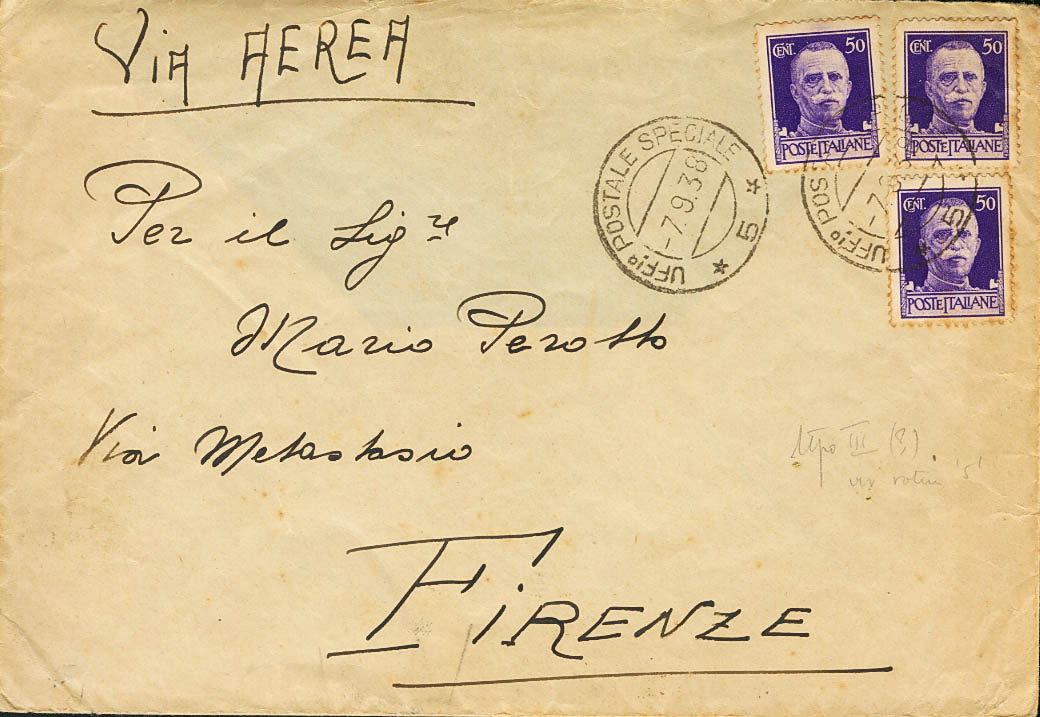 Via AEREA
CENT. 50
POSTE ITALIANE
CENT. 50
POSTE ITALIANE
CENT. 50
POSTE ITALIANE
UFF.º POSTALE SPECIALE
* 5 *
-7.9.38
UFF.º POS
-7.
5
Per il Sig.re
Mario Perotto
Via Metastasio
tipo III (?)
FiRENZE